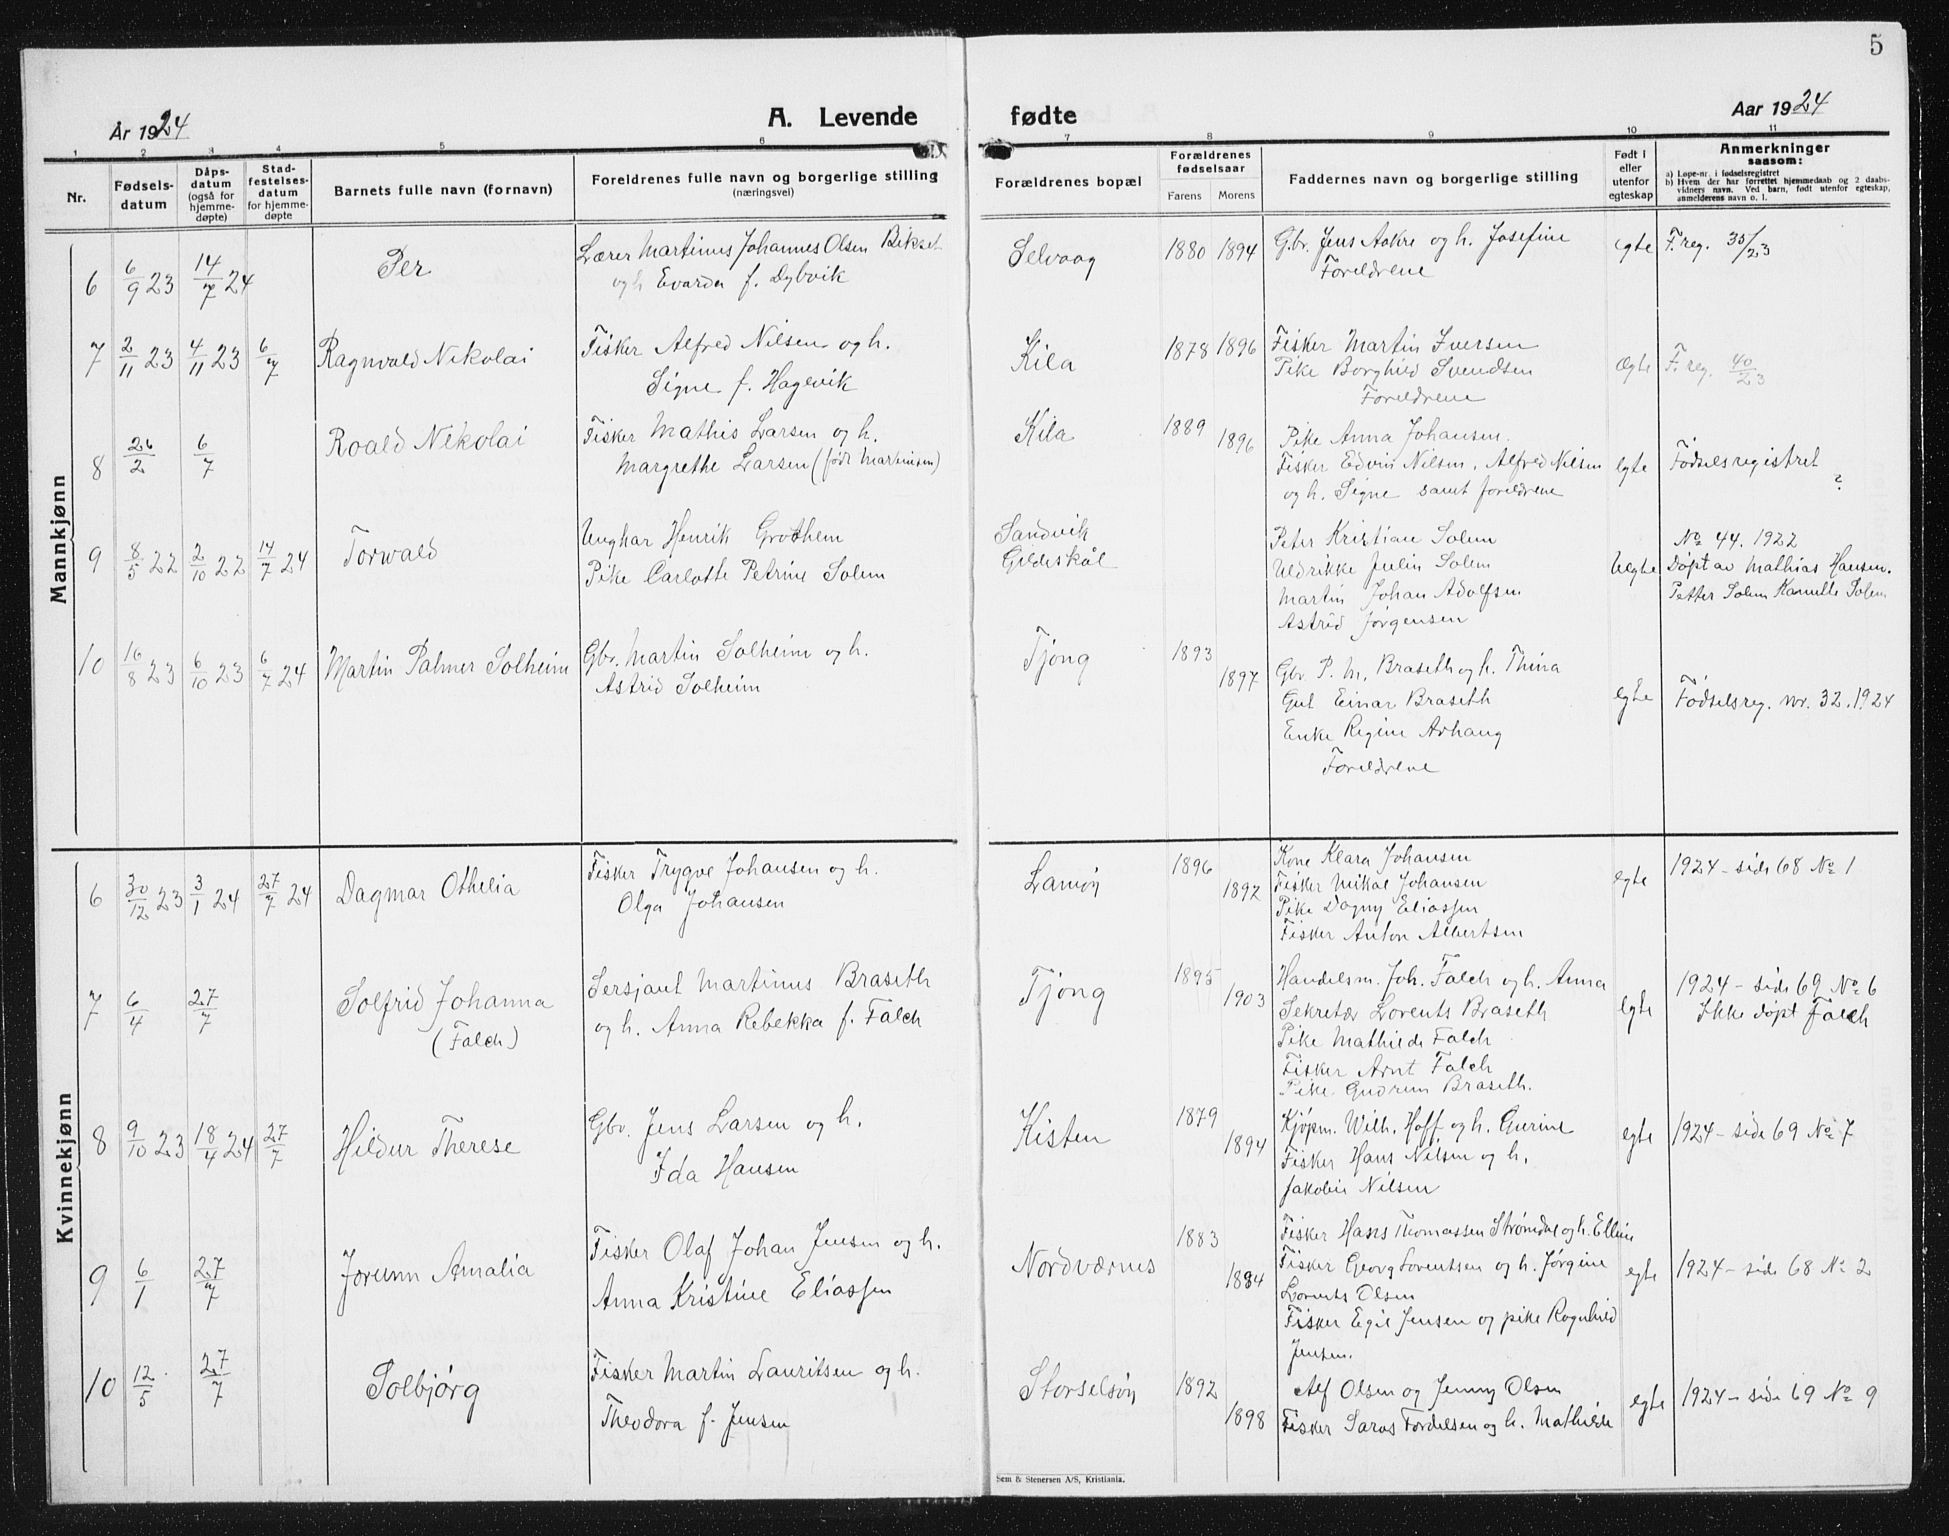 5
År 1924
A. Levende
fødte
Aar 1924
1 2 3 4 5 6 7 8 9 10 11
Nr.
Fødsels-
datum
Dåps-
datum
(også for
hjemme-
døpte)
Stad-
festelses-
datum
for hjemme-
døpte
Barnets fulle navn (fornavn)
Foreldrenes fulle navn og borgerlige stilling
(næringsvei)
Forældrenes bopæl
Forældrenes
fødselsaar
Farens Morens
Faddernes navn og borgerlige stilling
Født i
eller
utenfor
egteskap
Anmerkninger
saasom:
a) Løpe-nr. i fødselsregistret
b) Hvem der har forrettet hjemmedaab og 2 daabs-
vidners navn. Ved barn, født utenfor egteskap,
anmelderens navn o. l.
Mannkjønn
6 6/9 23 14/7 24 Per
Lærer Martinus Johannes Olsen Bikset
og h. Evarda f. Dybvik
Selvaag 1880 1894
Gbr. Jens Aakre og h. Josefine
Foreldrene
egte F. reg. 35/23
7 2/11 23 4/11 23 6/7 Ragnvald Nikolai
Fisker Alfred Nilsen og h.
Signe f. Hagevik
Kila 1878 1896
Fisker Martin Iversen
Pike Borghild Svendsen
Foreldrene
Ægte F. reg. 40/23
8 26/2 6/7 Roald Nikolai
Fisker Mathis Larsen og h.
Margrethe Larsen (født Martinsen)
Kila 1889 1896
Pike Anna Johansen.
Fisker Edvin Nilsen, Alfred Nilsen
og h. Signe samt foreldrene
egte Fødselsregistret
?
9 8/5 22 2/10 22 14/7 24 Torvald
Ungkar Henrik Grothem
Pike Carlotte Petrine Solem
Sandvik
Gildeskål
Peter Kristian Solem
Uldrikke Julin Solem
Martin Johan Adolfsen
Astrid Jørgensen
Uegte
No 44. 1922
Døpt av Mathias Hansen.
Petter Solem Kamille Solem
10 16/8 23 6/10 23 6/7 24 Martin Palmer Solheim
Gbr. Martin Solheim og h.
Astrid Solheim
Tjong 1893 1897
Gbr. P. M. Braseth og h. Thina
Gut Einar Braseth
Enke Regine Arhaug
Foreldrene
egte Fødselsreg. nr. 32. 1924
Kvinnekjønn
6 30/12 23 3/1 24 27/7 24 Dagmar Othelia
Fisker Trygve Johansen og h.
Olga Johansen
Lamøy 1896 1892
Kone Klara Johansen
Fisker Mikal Johansen
Pike Dagny Eliassen
Fisker Anton Albertsen
egte 1924 - side 68 No 1
7 6/4 27/7 Solfrid Johanna
(Falch)
Sersjant Martinus Braseth
og h. Anna Rebekka f. Falch
Tjong 1895 1903
Handelsm. Joh. Falch og h. Anna
Sekretær Lorents Braseth
Pike Mathilde Falch
Fisker Arnt Falch
Pike Gudrun Braseth.
egte 1924 - side 69 No 6
Ikke døpt Falch
8 9/10 23 18/4 24 27/7 Hildur Therese
Gbr. Jens Larsen og h.
Ida Hansen
Kisten 1879 1894
Kjøpm. Wilh. Hoff og h. Gurine
Fisker Hans Nilsen og h.
Jakobine Nilsen
egte 1924 - side 69 No 7
9 6/1 27/7 Jorunn Amalia
Fisker Olaf Johan Jensen og h.
Anna Kristine Eliassen
Nordværnes 1883 1884
Fisker Hans Thomassen Strømdal og h. Elline
Fisker Georg Lorentsen og h. Jørgine
Lorents Olsen
Fisker Egil Jensen og pike Ragnhild
Jensen.
egte 1924 - side 68 No 2
10 12/5 27/7 Solbjørg
Fisker Martin Lauritsen og h.
Theodora f. Jensen
Storselsøy 1892 1898
Alf Olsen og Jenny Olsen
Fisker Saras Fordelsen og h. Mathilde
egte 1924 - side 69 No 9
Sem & Stenersen A/S, Kristiania.